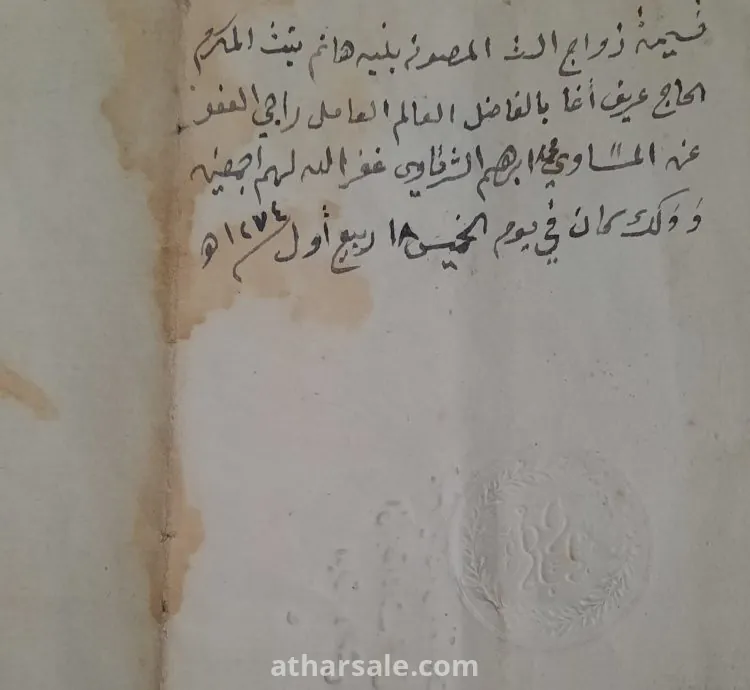 قسيمة زواج الست المصونه بنبه هانم بنت المكرم
الحاج عريف أغا بالفاضل العالم العامل راجي العفو
عن المساوي ابرهيم الشرقاوي غفر الله لهم اجمعين
وذلك كان في يوم الخميس ١٨ ربيع أول ١٢٧٤ ھ
atharsale.com